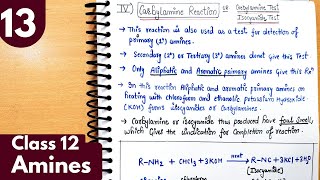 13
Class 12
Amines
IV) Carbylamine Reaction or Carbylamine Test
Isocyanide Test
→ This reaction is also used as a test for detection of
primary (1°) amines.
→ Secondary (2°) or Tertiary (3°) amines donot give this Test
→ Only Aliphatic and Aromatic primary amines give this Rxn
→ In this reaction Aliphatic and aromatic primary amines on
heating with chloroform and ethanolic potassium Hydroxide
(KOH) from isocyanides or Carbylamines.
→ Carbylamine or isocyanide thus produced have foul smell,
which gives the indication for Completion of reaction.
R-NH2 + CHCl3 + 3KOH heat → R-NC + 3KCl + 3H2O
(Isocyanide)